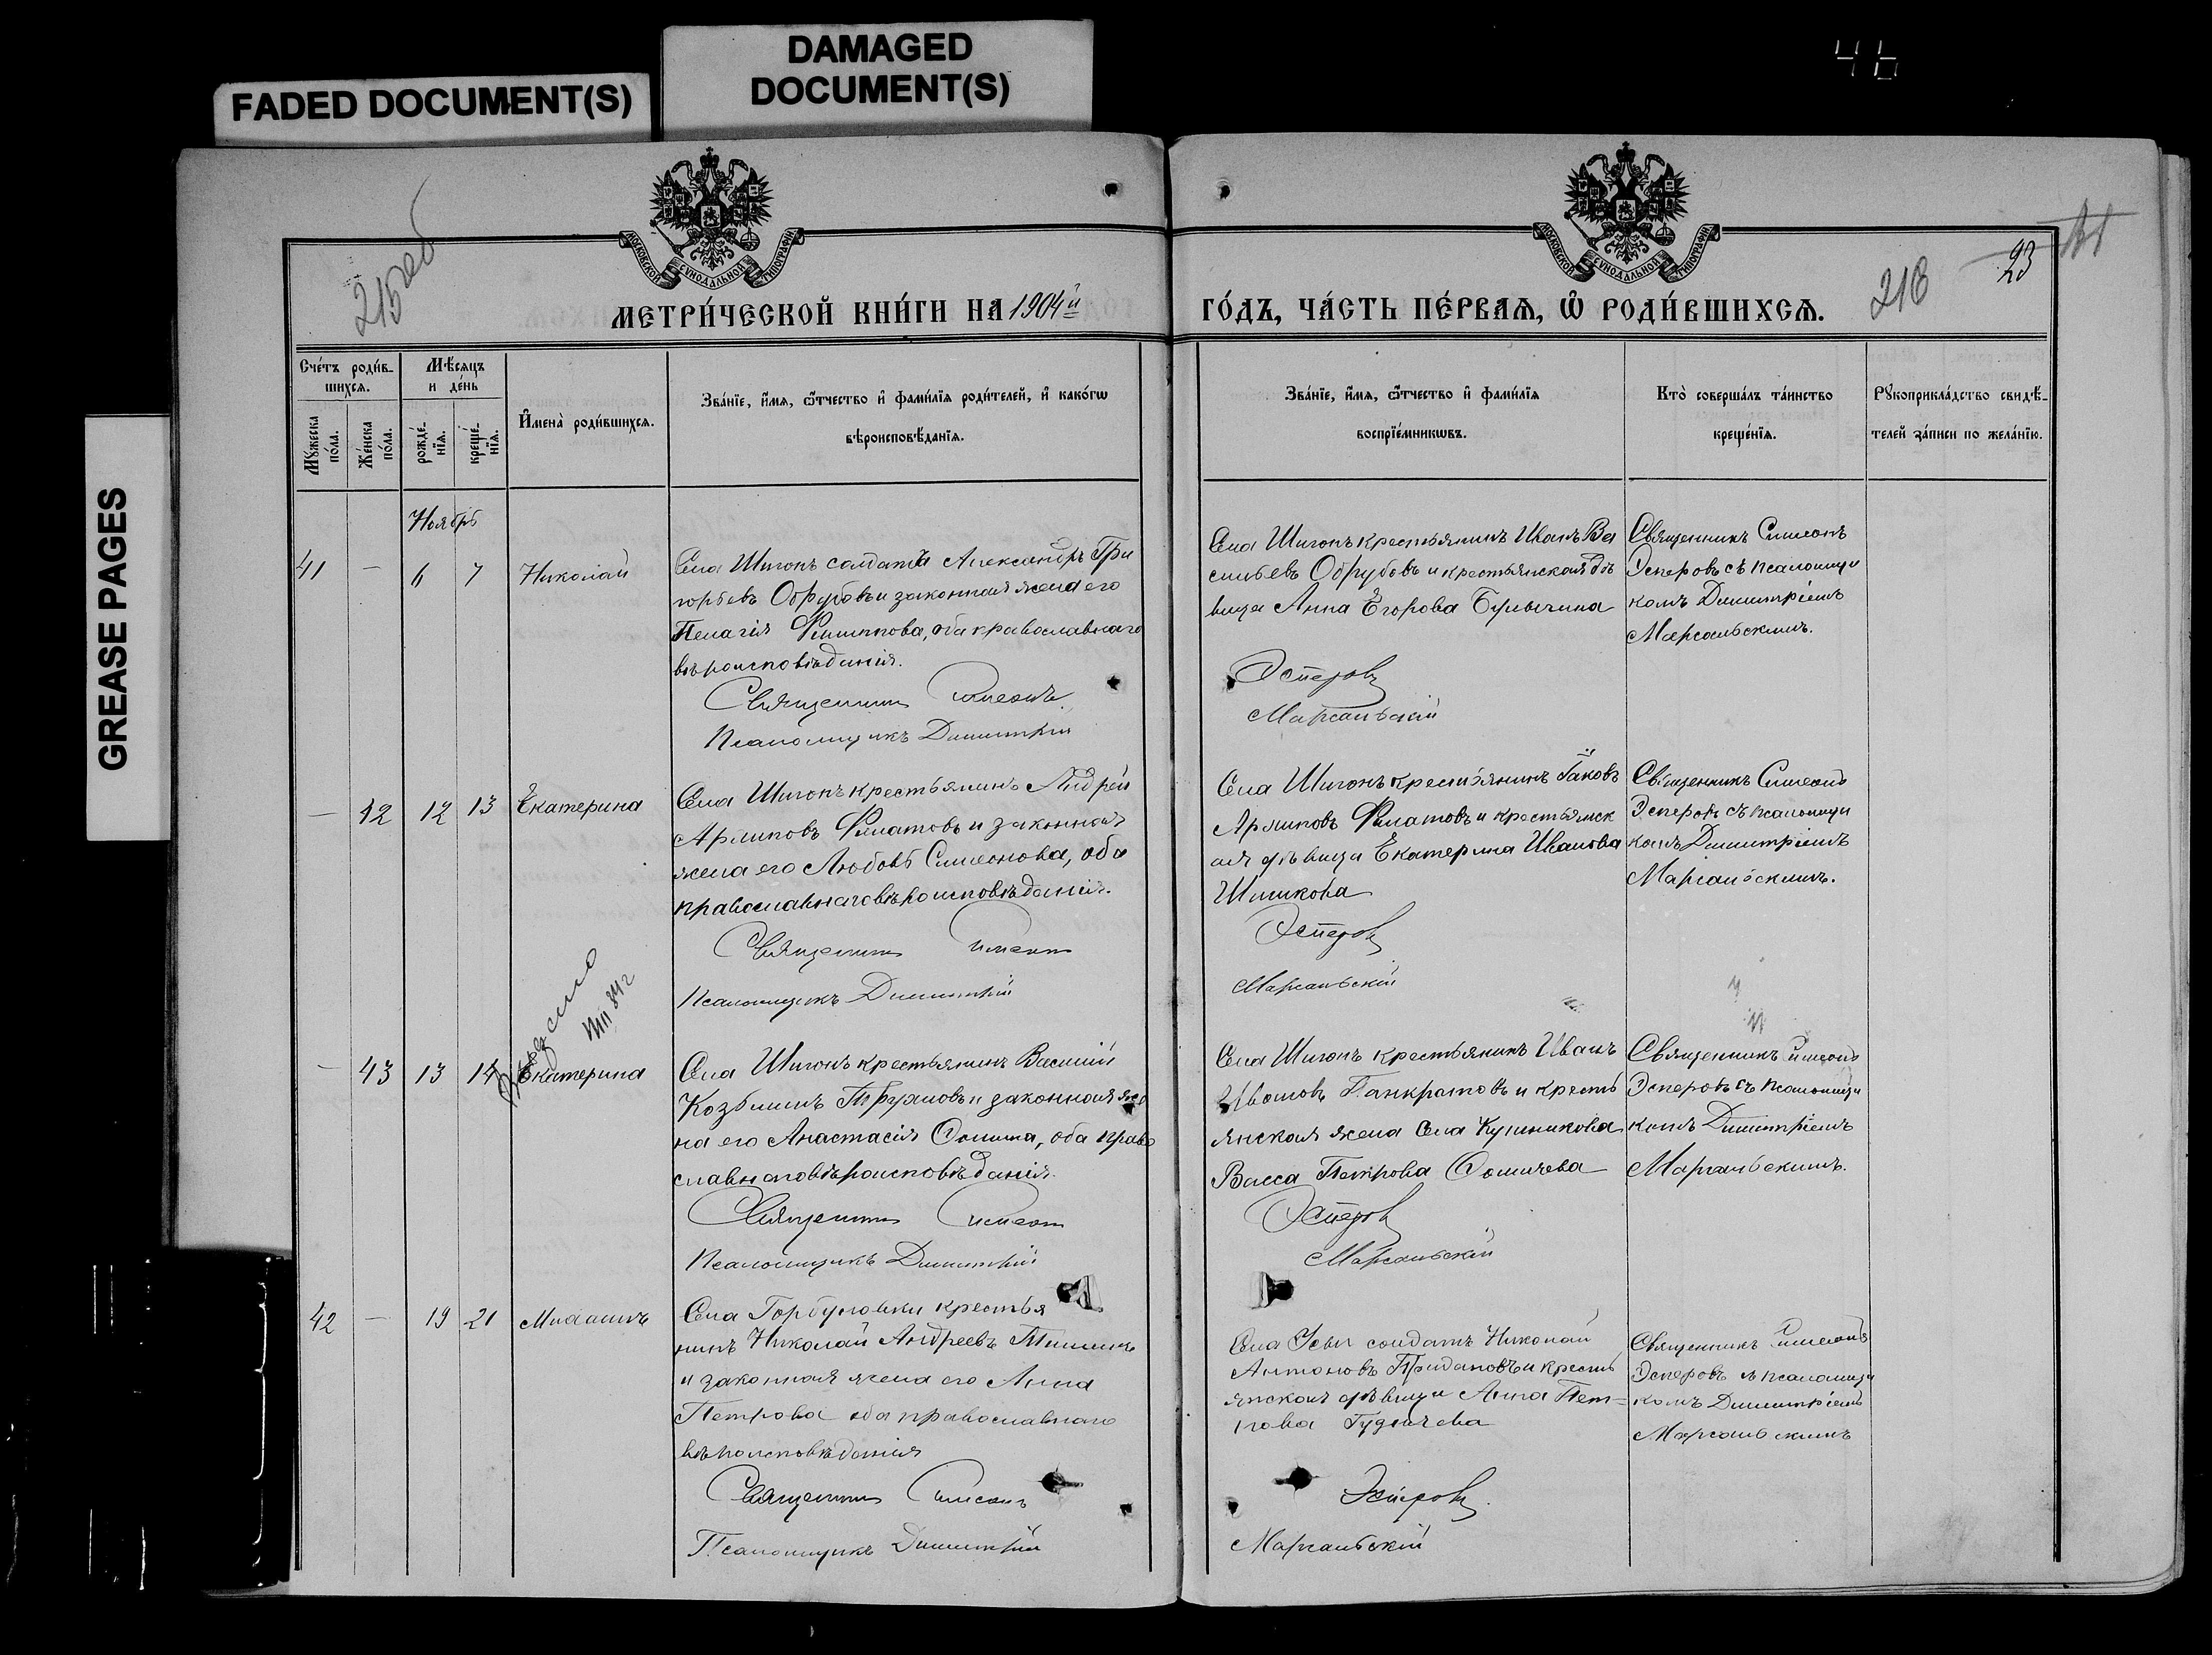 DAMAGED
DOCUMENT(S)
FADED DOCUMENT(S)
GREASE PAGES
4 6
215 об
218
23
МОСКОВСКОЙ СѴНОДАЛЬНОЙ ТИПОГРАФІИ
МОСКОВСКОЙ СѴНОДАЛЬНОЙ ТИПОГРАФІИ
МЕТРИ́ЧЕСКОЙ КНИ́ГИ НА 1904й
ГО́ДЪ, ЧА́СТЬ ПЕ́РВАЯ, Ѽ РОДИ́ВШИХСЯ.
Сче́тъ роди́в-
шихся.
Мѣ́сяцъ
и де́нь
Мꙋ́жеска
по́ла.
Же́нска
по́ла.
рожде́-
нїя.
креще́-
нїя.
Имена̀ роди́вшихся.
Зва́нїе, и́мя, ѻ́тчество и фами́лїя роди́телей, и како́гѡ
вѣроисповѣ́данїя.
Зва́нїе, и́мя, ѻ́тчество и фами́лїя
воспрїе́мникѡвъ.
Кто̀ соверша́лъ та́инство
креще́нїя.
Рꙋкоприкла́дство свидѣ́-
телей за́писи по жела́нїю.
Ноябрь
41 — 6 7 Николай
Села Шигонъ солдатъ Александръ Гри
горьевъ Обрубовъ и законная жена его
Пелагія Филиппова, оба православнаго
вѣроисповѣданія.
Священникъ Симеонъ
Псаломщикъ Димитрій
Села Шигонъ крестьянинъ Иванъ Ва
сильевъ Обрубовъ и крестьянская дѣ
вица Анна Егорова Булычина
Эсперовъ
Марсальскій
Священникъ Симеонъ
Эсперовъ съ псаломщи
комъ Димитріемъ
Марсальскимъ.
— 42 12 13 Екатерина
Села Шигонъ крестьянинъ Андрей
Архиповъ Филатовъ и законная
жена его Любовь Симеонова, оба
православнаго вѣроисповѣданія.
Священникъ Симеонъ
Псаломщикъ Димитрій
Села Шигонъ крестьянинъ Іаковъ
Архиповъ Филатовъ и крестьянск
ая дѣвица Екатерина Иванова
Шишкова
Эсперовъ
Марсальскій
Священникъ Симеонъ
Эсперовъ съ псаломщи
комъ Димитріемъ
Марсальскимъ.
— 43 13 14 Екатерина
Села Шигонъ крестьянинъ Василій
Козьминъ и законная же
на его Анастасія Фомина, оба право
славнаго вѣроисповѣданія.
Священникъ Симеонъ
Псаломщикъ Димитрій
Села Шигонъ крестьянинъ Иванъ
Ивановъ Панкратовъ и кресть
янская жена села Кушникова
Васса Петрова Фомичева
Эсперовъ
Марсальскій
Священникъ Симеонъ
Эсперовъ съ псаломщи
комъ Димитріемъ
Марсальскимъ.
42 — 19 21 Михаилъ
Села Горбуновки крестья
нинъ Николай Андреевъ
и законная жена его Анна
Петрова оба православнаго
вѣроисповѣданія
Священникъ Симеонъ
Псаломщикъ Димитрій
Села Усы солдатъ Николай
Антоновъ и кресть
янская дѣвица Анна Пет=
рова
Эсперовъ
Марсальскій
Священникъ Симеонъ
Эсперовъ съ псаломщи
комъ Димитріемъ
Марсальскимъ